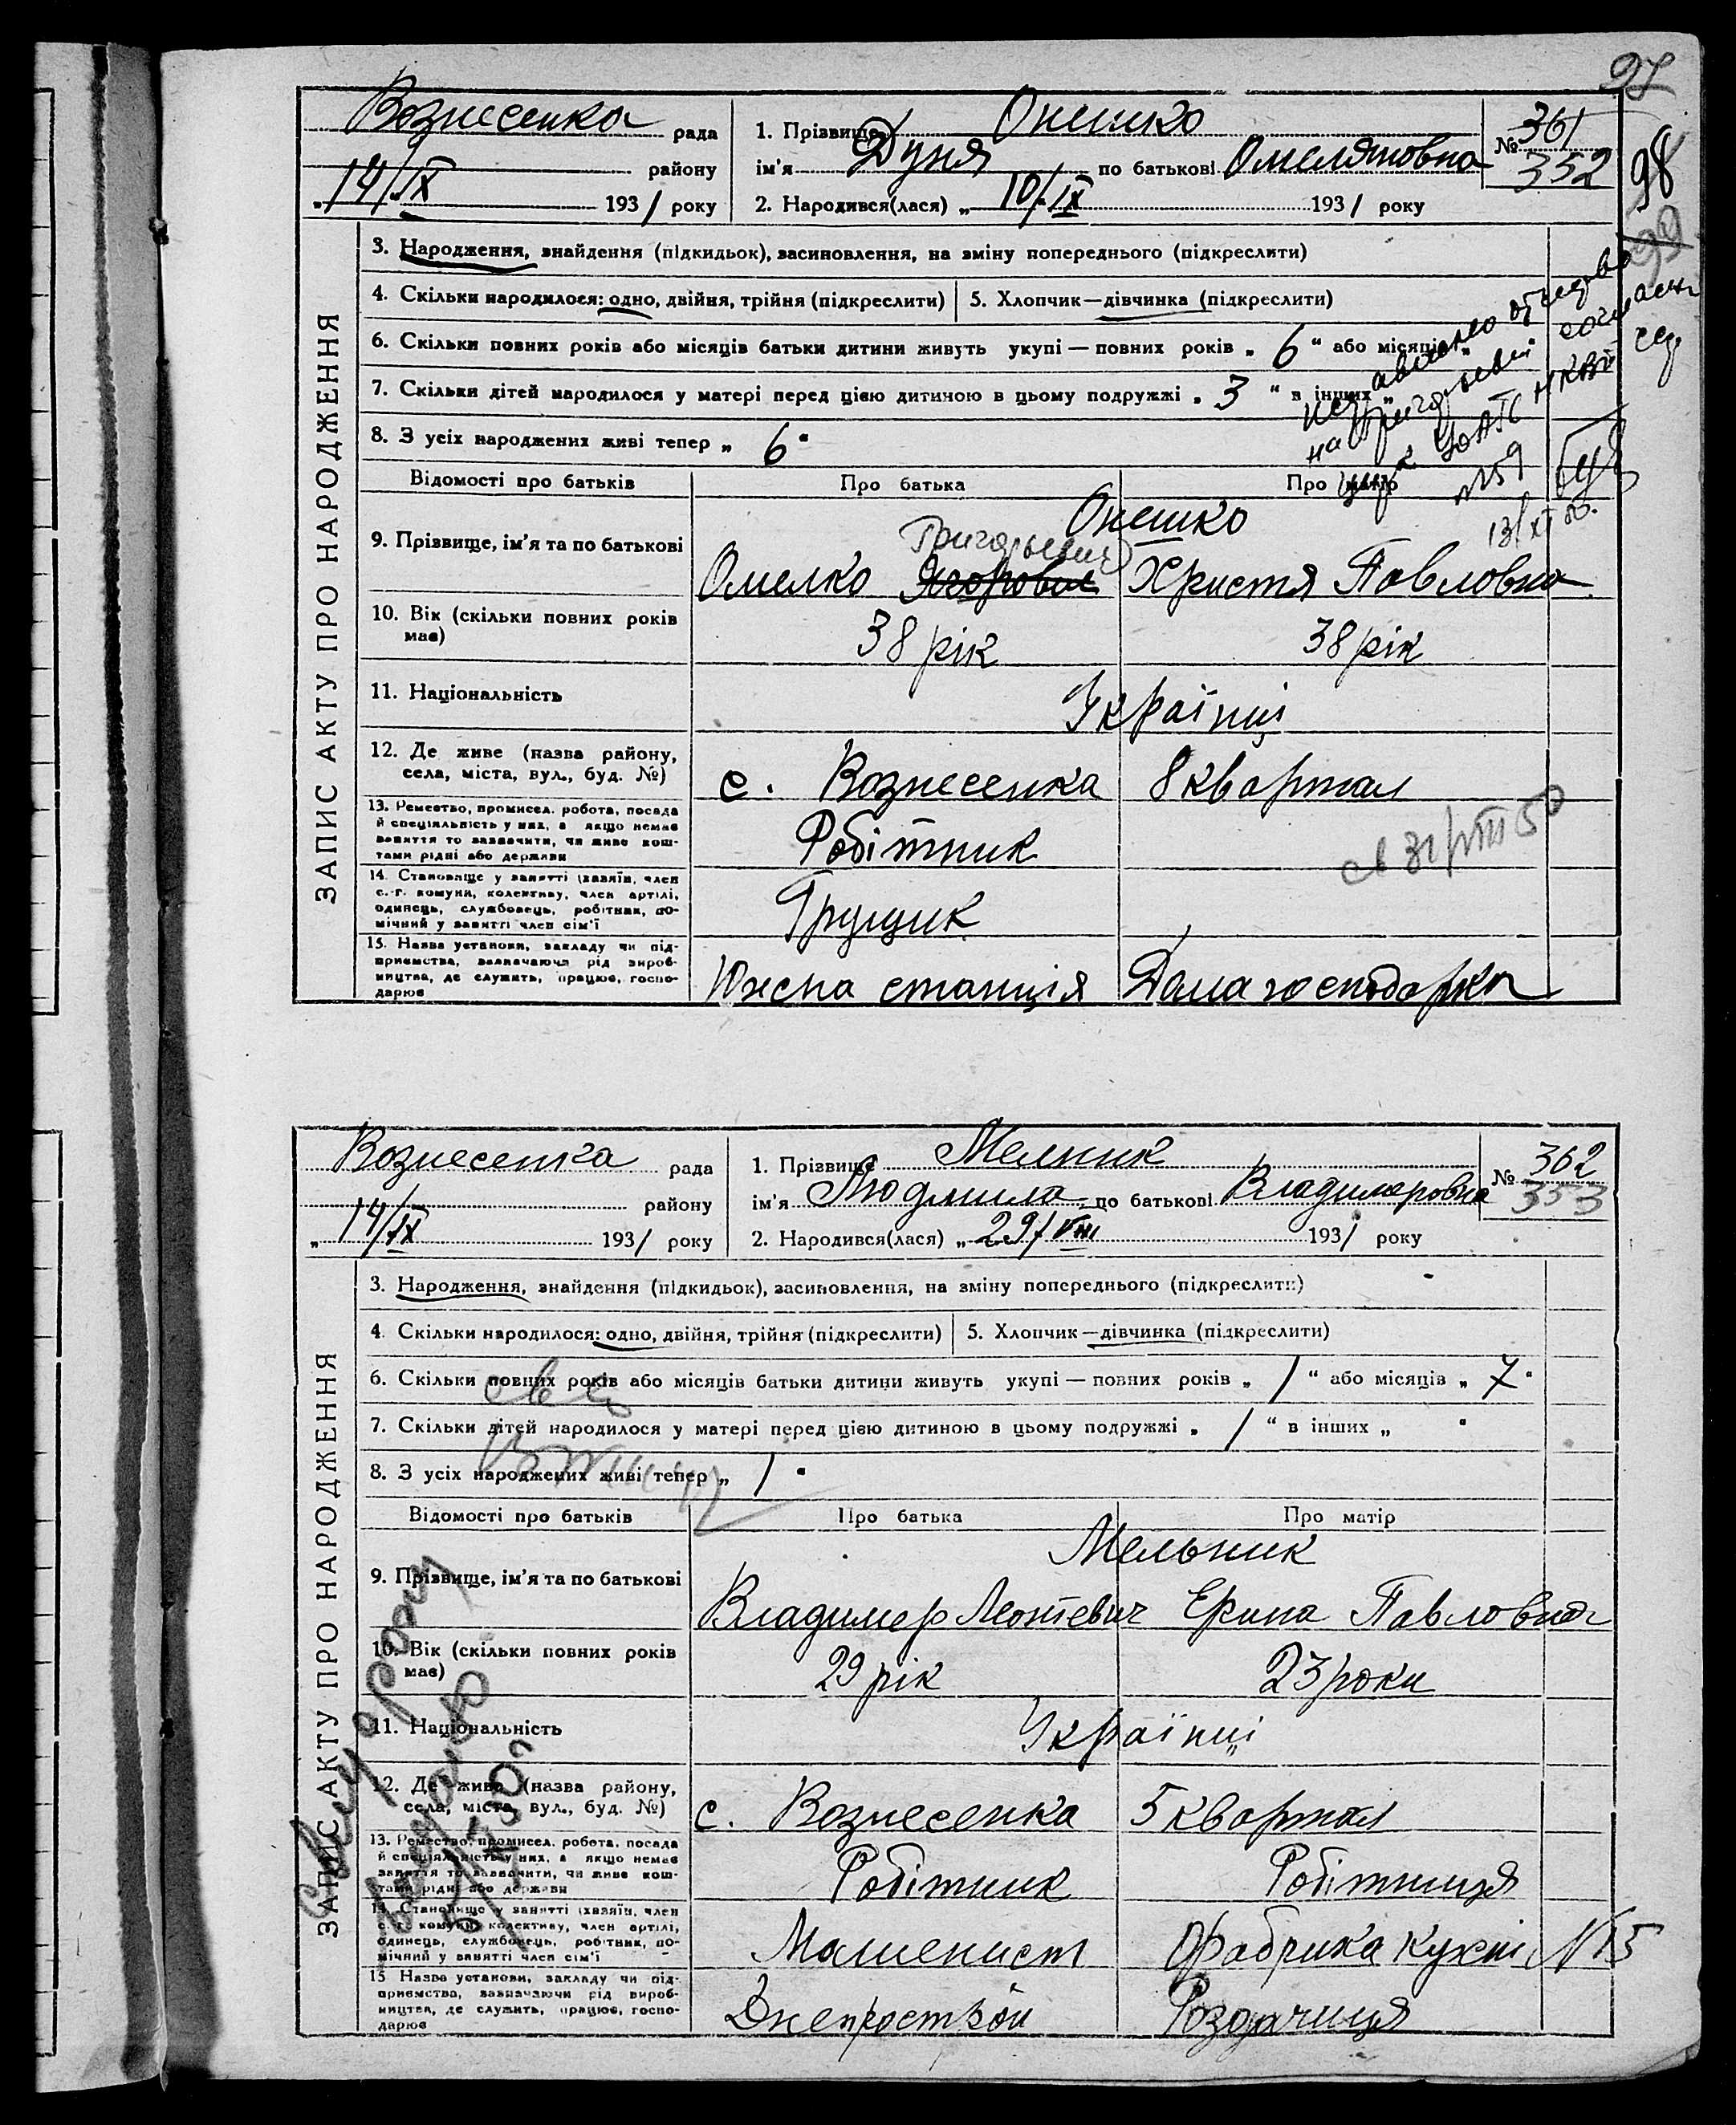 97
98
99
ЗАПИС АКТУ ПРО НАРОДЖЕННЯ
Вознесенка рада
району
„14/IX 1931 року
1. Прізвище Онешко
ім'я Дуня по батькові Омеляновна
2. Народився(лася) „10/IX 1931 року
№ 361
352
3. Народження, знайдення (підкидьок), засиновлення, на зміну попереднього (підкреслити)
4. Скільки народилося: одно, двійня, трійня (підкреслити) 5. Хлопчик—дівчинка (підкреслити)
6. Скільки повних років або місяців батьки дитини живуть укупі — повних років „ 6 “ або місяців „
7. Скільки дітей народилося у матері перед цією дитиною в цьому подружжі „ 3 “ в інших „
8. З усіх народжених живі тепер „ 6 “
Відомості про батьків Про батька Про матір
на Григорьевич
ЗАГС НКВД
№59
13/XI 50.
9. Прізвище, ім'я та по батькові
Онешко
Григорьевич
Омелко Ягорович Христя Павловна
10. Вік (скільки повних років має)
38 рік 38 рік
11. Національність
Українці
12. Де живе (назва району, села, міста, вул., буд. №)
с. Вознесенка 8 квартал
13. Ремество, промисел. робота, посада
й спеціяльність у них, а якщо немає
заняття то зазначити, чи живе кош-
тами рідні або держави
Робітник
14. Становище у занятті (хазяїн, член
с.-г. комуни, колективу, член артілі,
одинець, службовець, робітник, по-
мічний у занятті член сім'ї
Грущик
15. Назва установи, закладу чи під-
приємства, зазначаючи рід вироб-
ництва, де служить, працює, госпо-
дарює
Южна станція Дома господарка
ЗАПИС АКТУ ПРО НАРОДЖЕННЯ
Вознесенка рада
району
„14/IX 1931 року
1. Прізвище Мельник
ім'я Людмила по батькові Владимеровна
2. Народився(лася) „29/VIII 1931 року
№ 362
353
3. Народження, знайдення (підкидьок), засиновлення, на зміну попереднього (підкреслити)
4. Скільки народилося: одно, двійня, трійня (підкреслити) 5. Хлопчик—дівчинка (підкреслити)
6. Скільки повних років або місяців батьки дитини живуть укупі — повних років „ 1 “ або місяців „ 7 “
7. Скільки дітей народилося у матері перед цією дитиною в цьому подружжі „ 1 “ в інших „ “
8. З усіх народжених живі тепер „ 1 “
Відомості про батьків Про батька Про матір
9. Прізвище, ім'я та по батькові
Мельник
Владимер Леонтевич Ерина Павловна
10. Вік (скільки повних років має)
29 рік 23 роки
11. Національність
Українці
12. Де живе (назва району, села, міста, вул., буд. №)
с. Вознесенка 5 квартал
13. Ремество, промисел. робота, посада
й спеціяльність у них, а якщо немає
заняття то зазначити, чи живе кош-
тами рідні або держави
Робітник Робітниця
14. Становище у занятті (хазяїн, член
с.-г. комуни, колективу, член артілі,
одинець, службовець, робітник, по-
мічний у занятті член сім'ї
Машенист Фабрика кухні №15
15. Назва установи, закладу чи під-
приємства, зазначаючи рід вироб-
ництва, де служить, працює, госпо-
дарює
Днепрострой Роздачиця